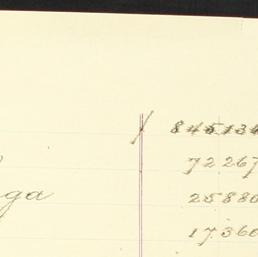 845134
72267
ga 25880
17360